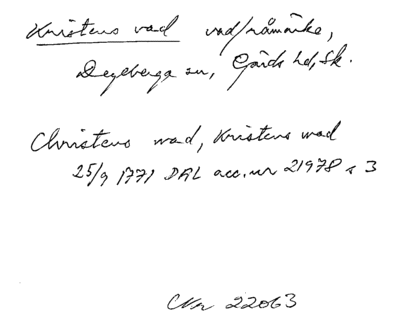 Kristens vad vad/råmärke,
Degeberga sn, Gärds hd, Sk.
Christens wad, Kristens wad
25/9 1771 DAL acc.nr 21978 s 3
CNr 22063